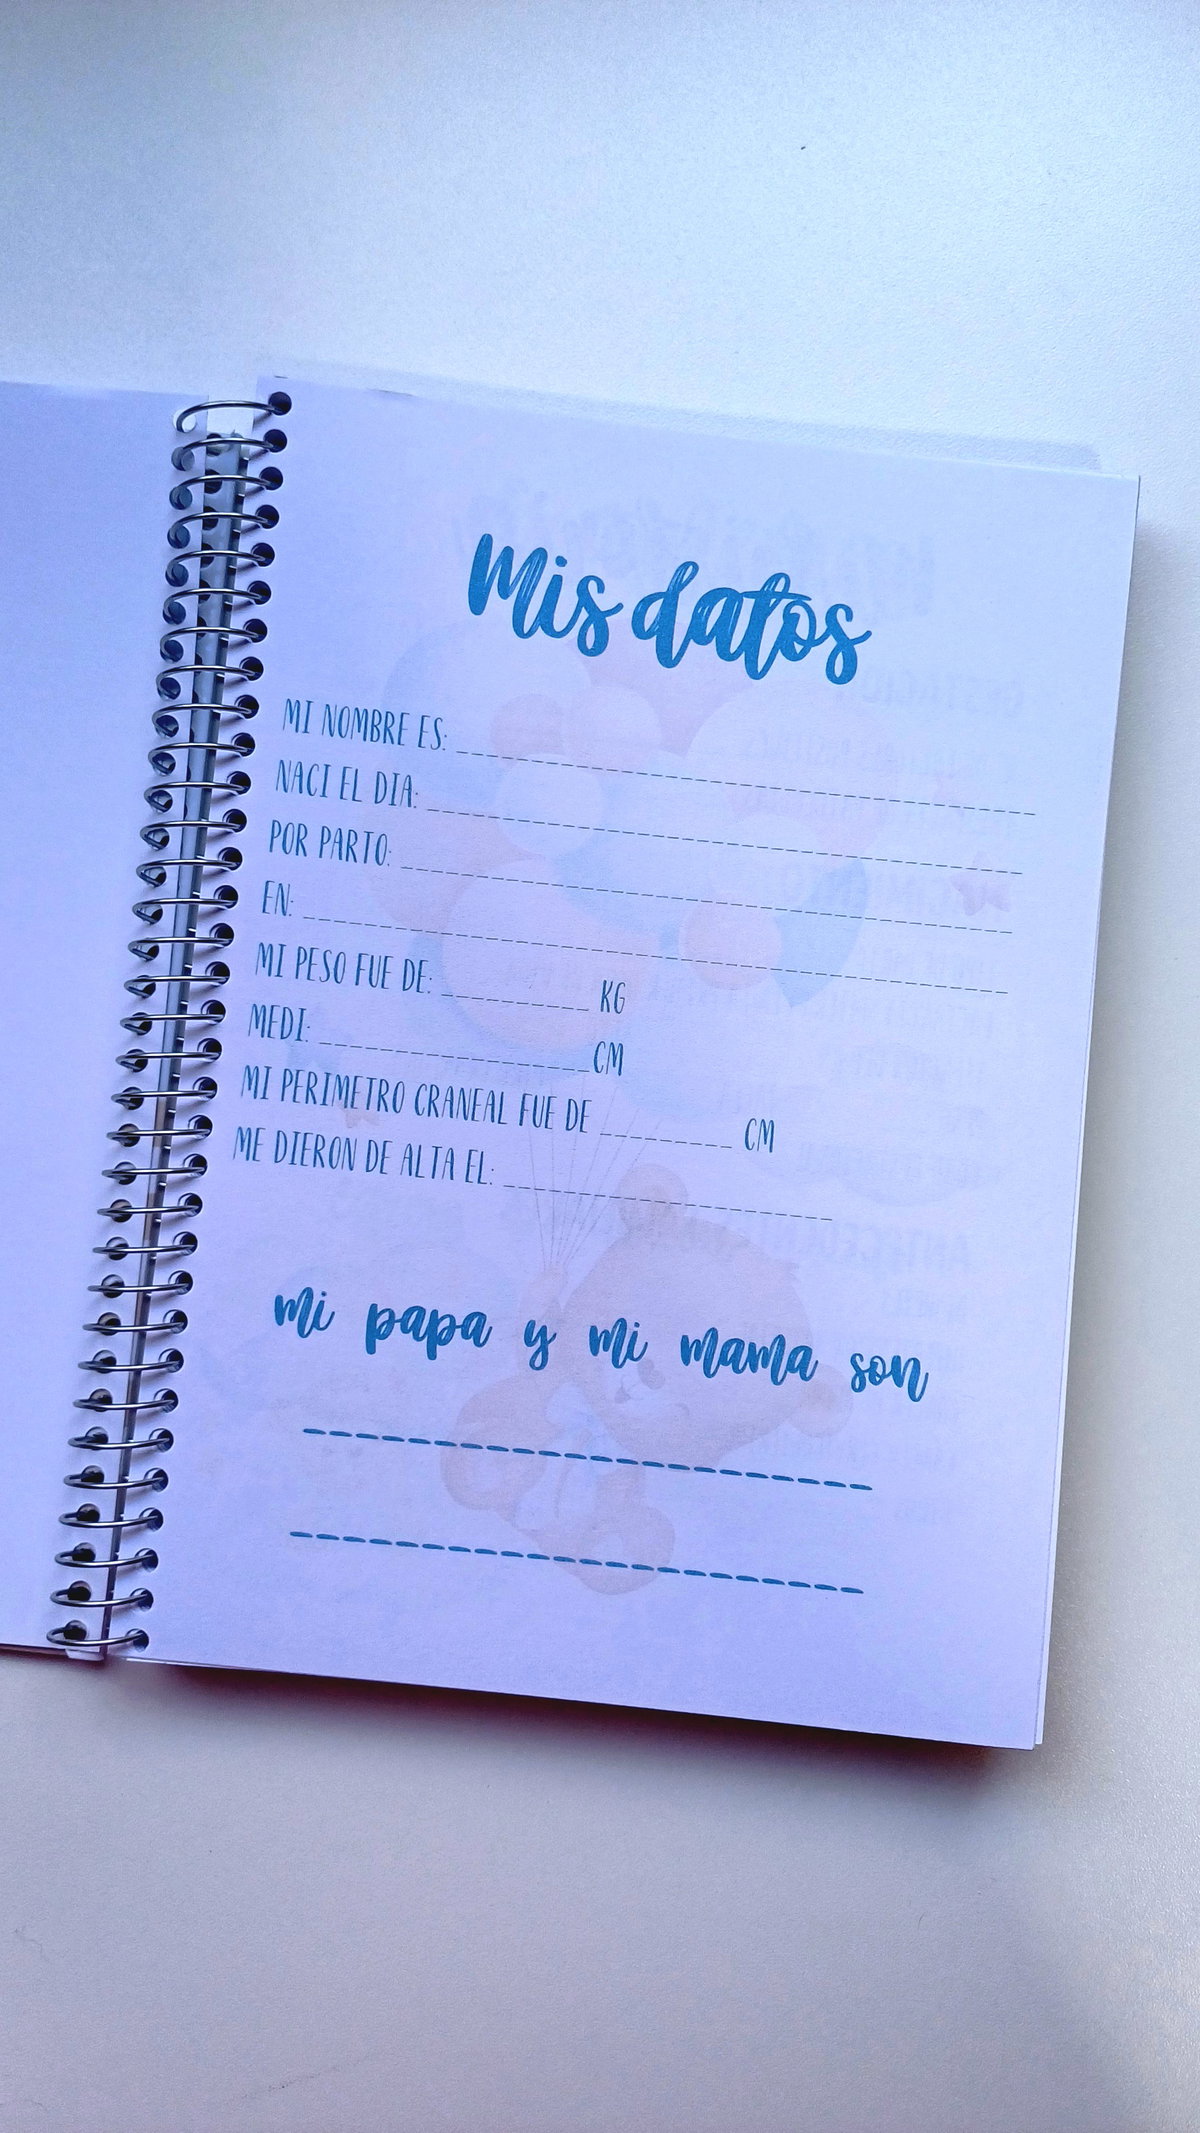 Mis datos
MI NOMBRE ES:
NACI EL DIA:
POR PARTO:
EN:
MI PESO FUE DE: KG
MEDI: CM
MI PERIMETRO CRANEAL FUE DE CM
ME DIERON DE ALTA EL:
mi papa y mi mama son